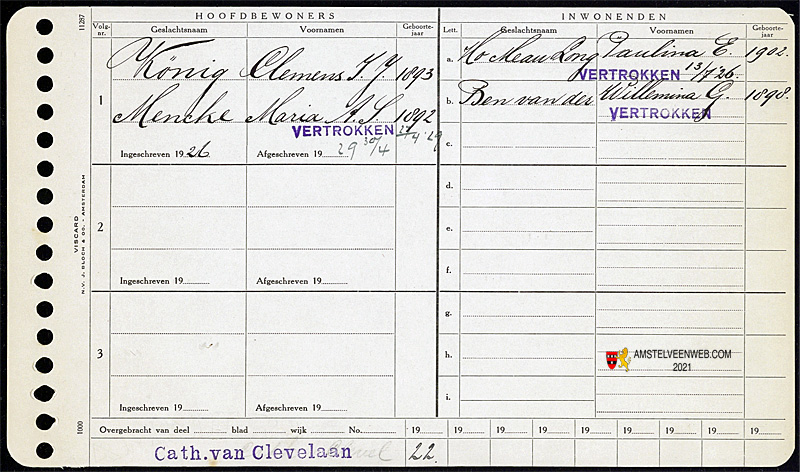 HOOFDBEWONERS
Volg-nr. Geslachtsnaam Voornamen Geboorte-jaar
1 König Clemens J. J. 1893
Mencke Maria A. S. 1892
VERTROKKEN 29/4 '29
Ingeschreven 1926 Afgeschreven 19 29 30/4
2
Ingeschreven 19 Afgeschreven 19
3
Ingeschreven 19 Afgeschreven 19
INWONENDEN
Lett. Geslachtsnaam Voornamen Geboorte-jaar
a. Paulina E. 1902.
VERTROKKEN 13/7'26.
b. Ben van der Willemina G. 1898.
VERTROKKEN
c.
d.
e.
f.
g.
h.
i.
AMSTELVEENWEB.COM
2021
Overgebracht van deel blad wijk No. 19 19 19 19 19 19 19 19 19
Cath. van Clevelaan 22.
11287
VISCARD
N.V. J. BLOCH & CO. - AMSTERDAM
1000